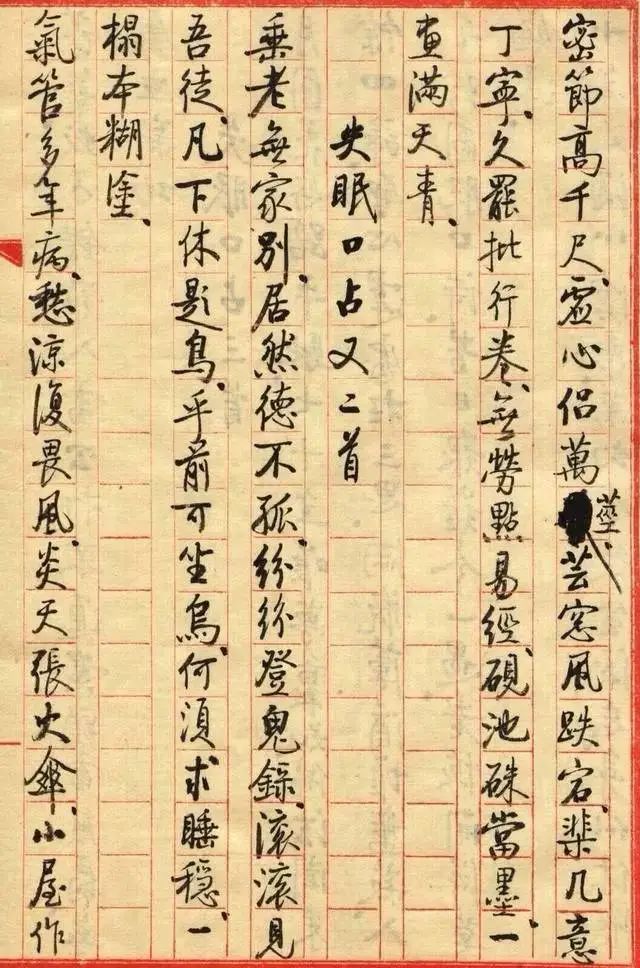 密節高千尺、虛心侶萬莖、芸窓風跌宕、棐几意
丁寧、久罷批行卷、無勞點易經、硯池硃當墨、一
畫滿天青、
失眠口占又二首
垂老無家別、居然德不孤、紛紛登鬼錄、滾滾見
吾徒、凡下休題鳥、乎前可坐烏、何須求睡穩、一
榻本糊塗、
氣管多年病、愁涼復畏風、炎天張火傘、小屋作